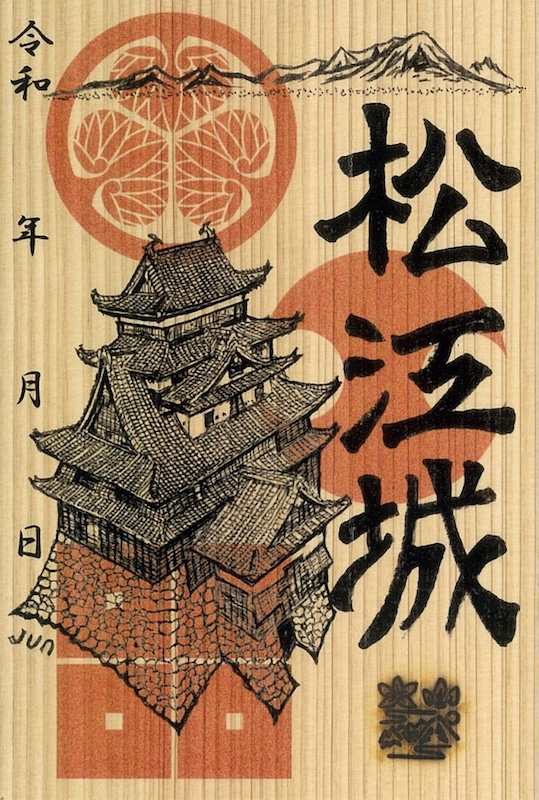 松江城
令和 年 月 日
JUN